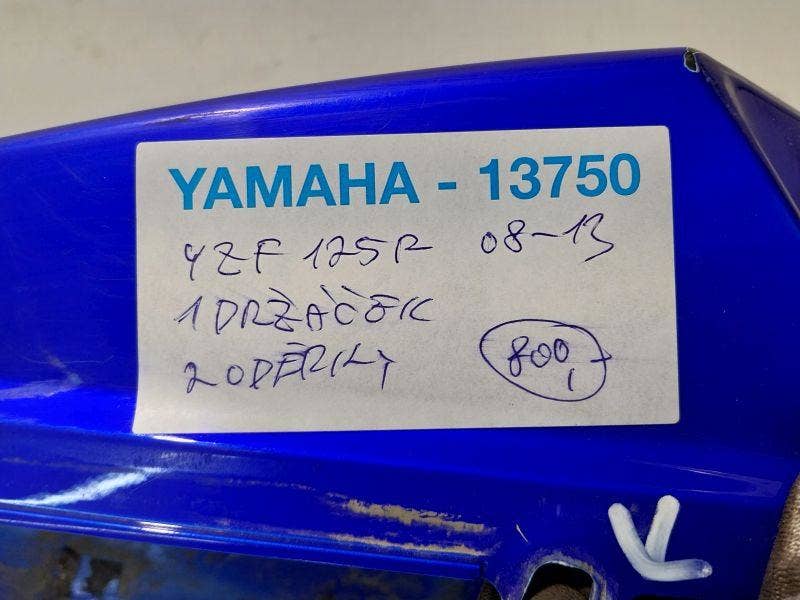 YAMAHA - 13750
YZF 125R 08-13
1 DRŽÁČEK
2 ODĚRKY 800,-